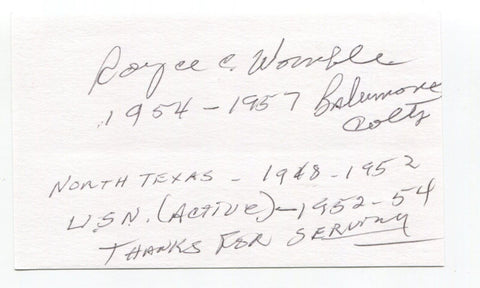 Royce C. Womble
1954 - 1957 Baltimore
Colts
NORTH TEXAS - 1948 - 1952
U.S.N. (ACTIVE) - 1952 - 54
THANKS FOR SERVING